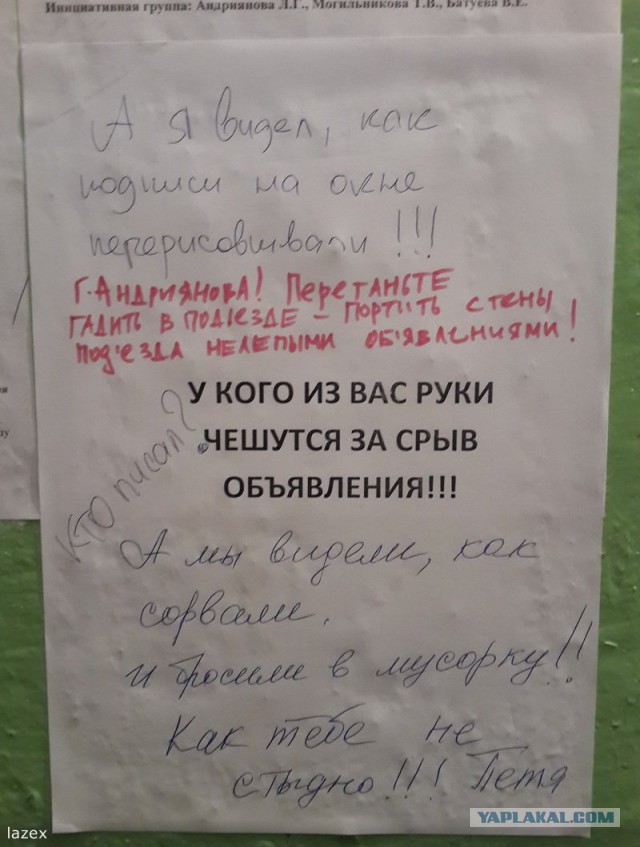 Инициативная группа: Андриянова Л.Г., Могильникова Т.В., Батуева В.Е.
А я видел, как
на окне
перерисовывали !!!
Г. Андриянова! Перетаньте
гадить в подъезде – портить стены
под'езда нелепыми об'явлениями!
У КОГО ИЗ ВАС РУКИ
ЧЕШУТСЯ ЗА СРЫВ
ОБЪЯВЛЕНИЯ!!!
КТО писал?
А мы видели, как
сорвали.
и бросили в мусорку!!
Как тебе не
стыдно!!! Петя
YAPLAKAL.COM
lazex